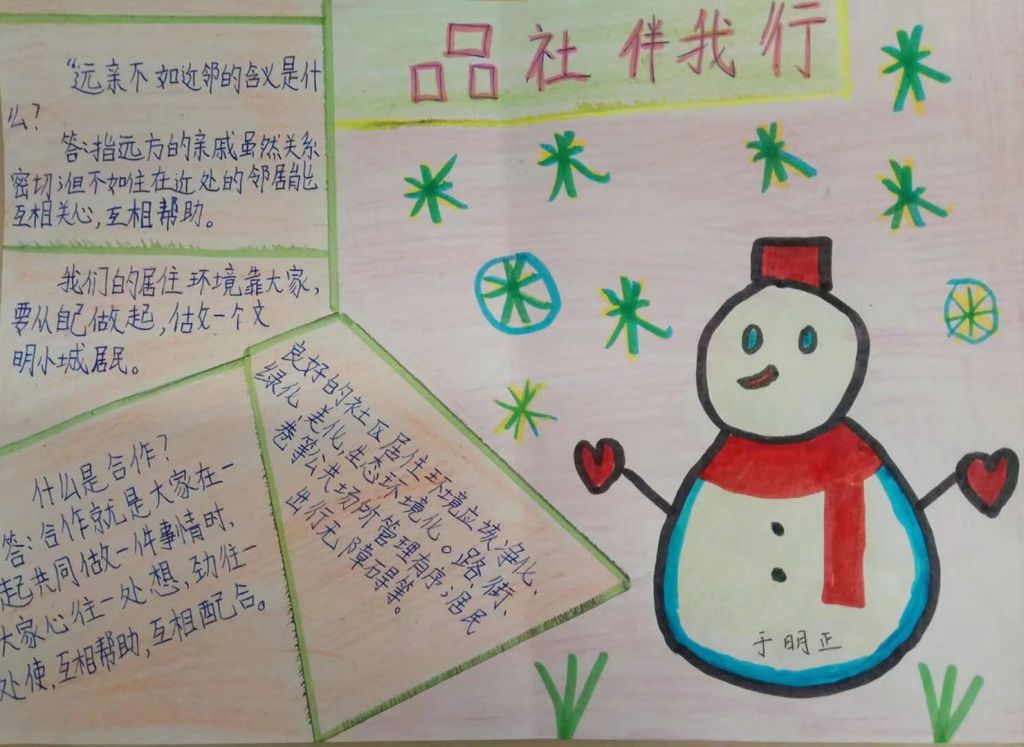 品社伴我行
“远亲不如近邻的含义是什
么？
答：指远方的亲戚虽然关系
密切；但不如住在近处的邻居能
互相关心，互相帮助。
我们的居住环境靠大家，
要从自己做起，做一个文
明小城居民。
什么是合作？
答：合作就是大家在一
起共同做一件事情时，
大家心往一处想，劲往一
处使，互相帮助，互相配合。
良好的社区居住环境应该净化、
绿化、美化，生态环境化。路、街、
巷等公共场所管理有序；居民
出行无障碍等。
于明正